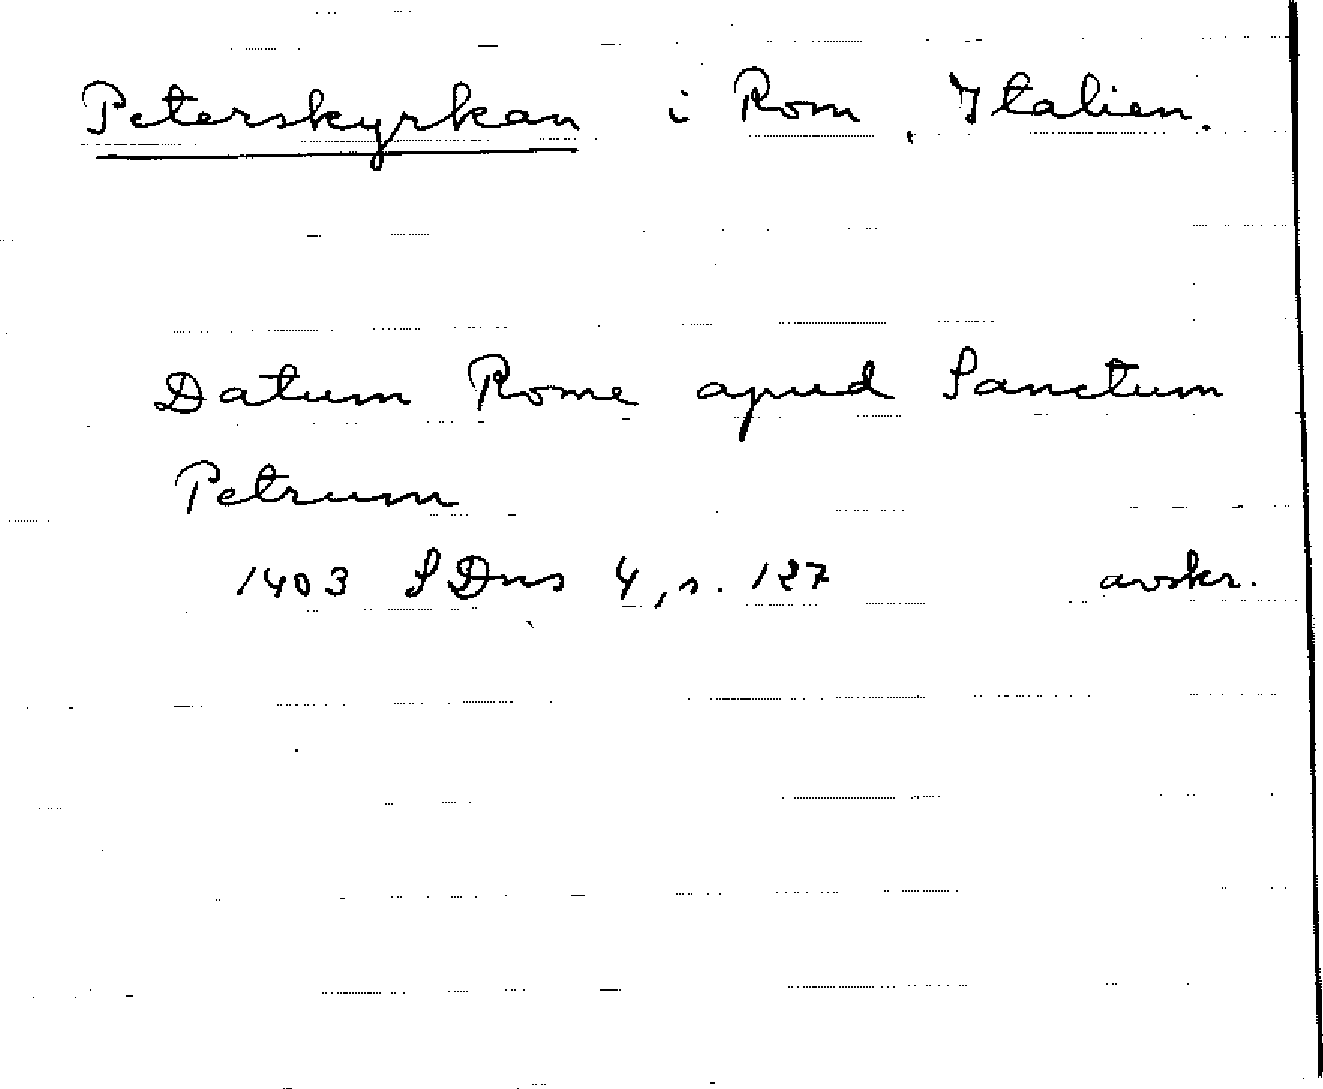 Peterskyrkan i Rom, Italien.
Datum Rome apud Sanctum
Petrum
1403 SDns 4, s. 127 avskr.